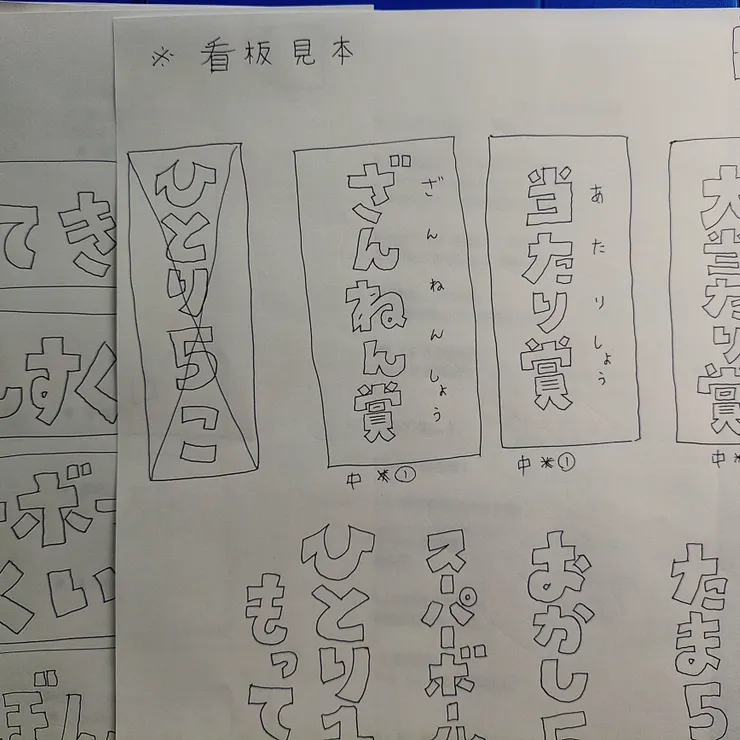 ※看板見本
大当たり賞
中※
当たり賞
あたりしょう
中※①
ざんねん賞
ざんねんしょう
中※①
ひとり5こ
たま5
おかし5
スーパーボール
ひとり1
もって
てき
すく
ーボー
くい
ぼん